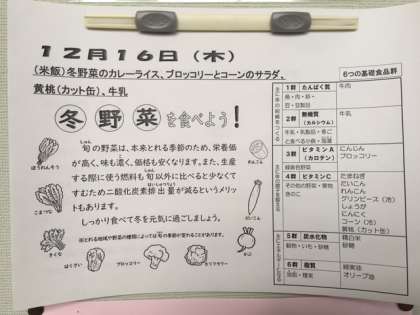 12月16日（木）
（米飯）冬野菜のカレーライス、ブロッコリーとコーンのサラダ、
黄桃（カット缶）、牛乳
冬野菜を食べよう！
旬の野菜は、本来とれる季節のため、栄養価
が高く、味も濃く、価格も安くなります。また、生産
する際に使う燃料も旬以外に比べると少なくて
すむため二酸化炭素排出量が減るというメリッ
トもあります。
しっかり食べて冬を元気に過ごしましょう。
ほうれんそう
こまつな
しゅんぎく
はくさい
ブロッコリー
カリフラワー
れんこん
だいこん
かぶ
※とれる地域や野菜の種類によっては旬の季節が変わることがあります。
6つの基礎食品群
1群 たんぱく質
魚・肉・卵・
豆・豆製品
牛肉
2群 無機質
（カルシウム）
牛乳・乳製品・骨ご
と食べる小魚・海藻
牛乳
3群 ビタミンA
（カロテン）
緑黄色野菜
にんじん
ブロッコリー
4群 ビタミンC
その他の野菜・果物
きのこ
たまねぎ
だいこん
れんこん
グリンピース（冷）
しょうが
にんにく
コーン（冷）
黄桃（カット缶）
5群 炭水化物
穀物・いも・砂糖
精白米
砂糖
6群 脂質
油脂・種実
綿実油
オリーブ油